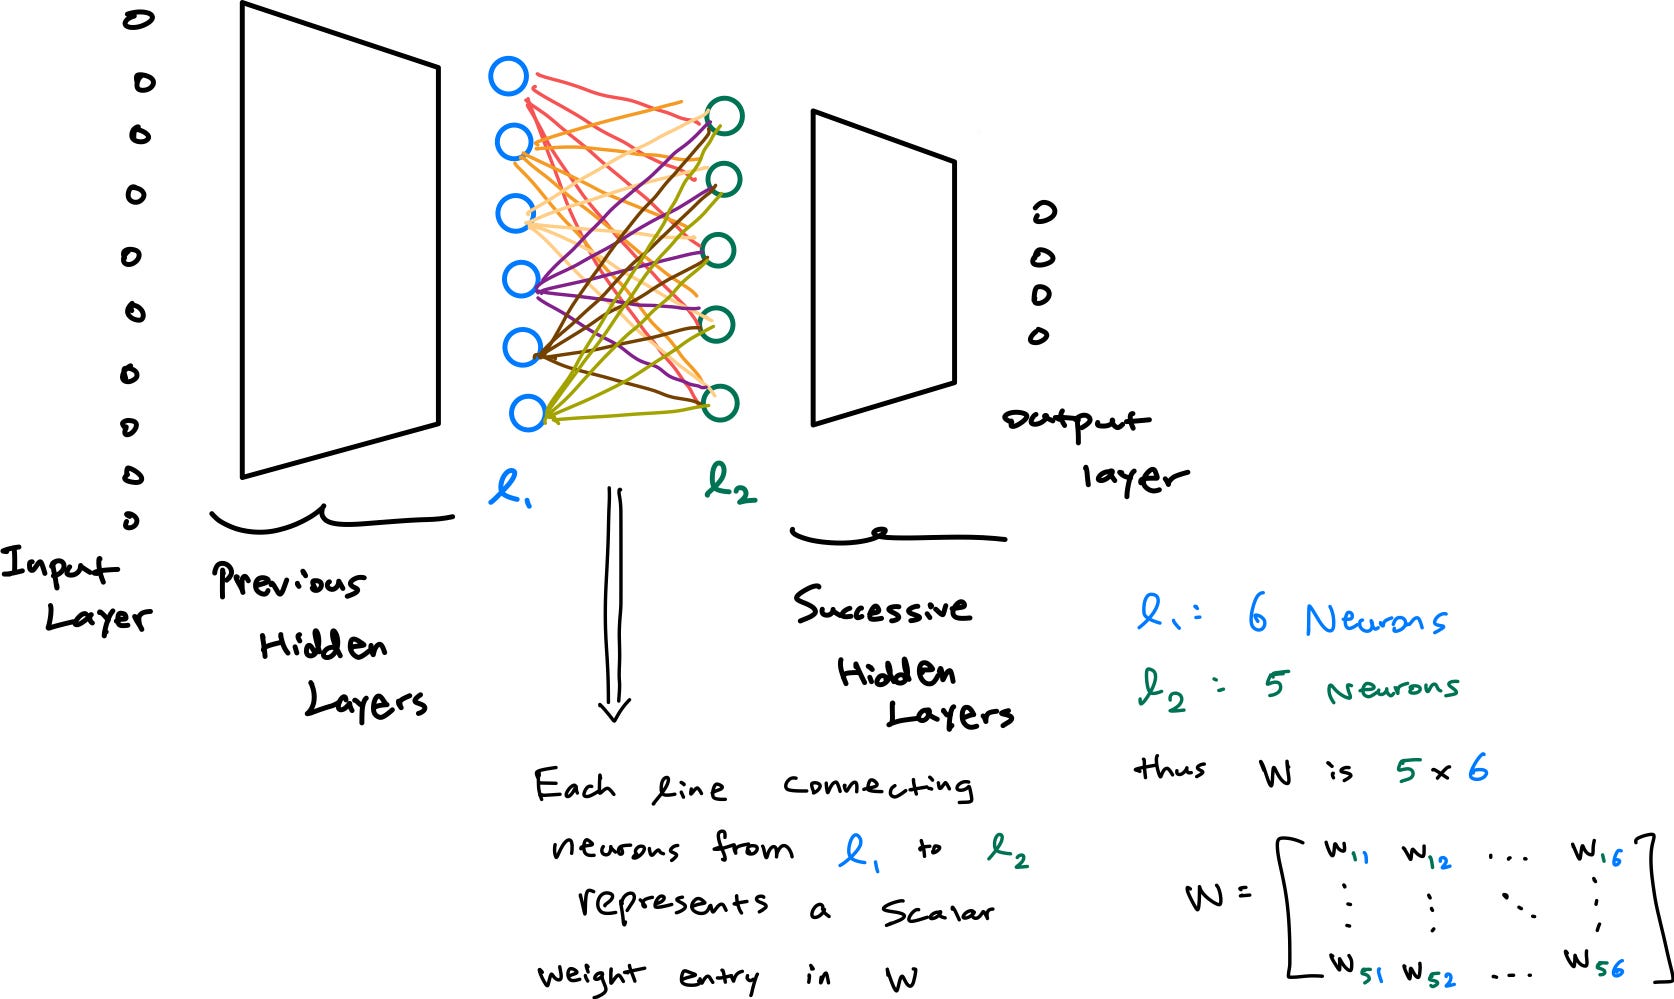 l₁
l₂
Output
layer
Input
Layer
Previous
Hidden
Layers
Successive
Hidden
Layers
l₁ : 6 Neurons
l₂ : 5 Neurons
thus W is 5 x 6
Each line connecting
neurons from l₁ to l₂
represents a scalar
weight entry in W
W = [ W₁₁ W₁₂ ... W₁₆
⋮ ⋮ ⋱ ⋮
W₅₁ W₅₂ .... W₅₆ ]